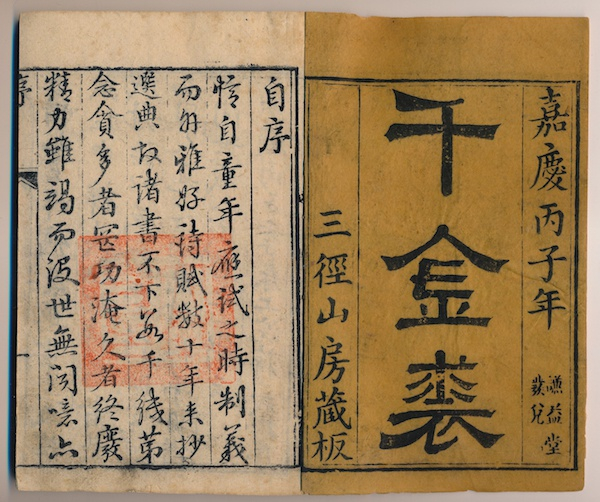 嘉慶丙子年
謙益堂
發兌
千金裘
三徑山房藏板
自序
自童年應試之時制義
而外雅好詩賦數十年來抄
選典故諸書不下若千第
念貪多者罔功淹久者終廢
精力雖竭而沒世無聞噫亦
序